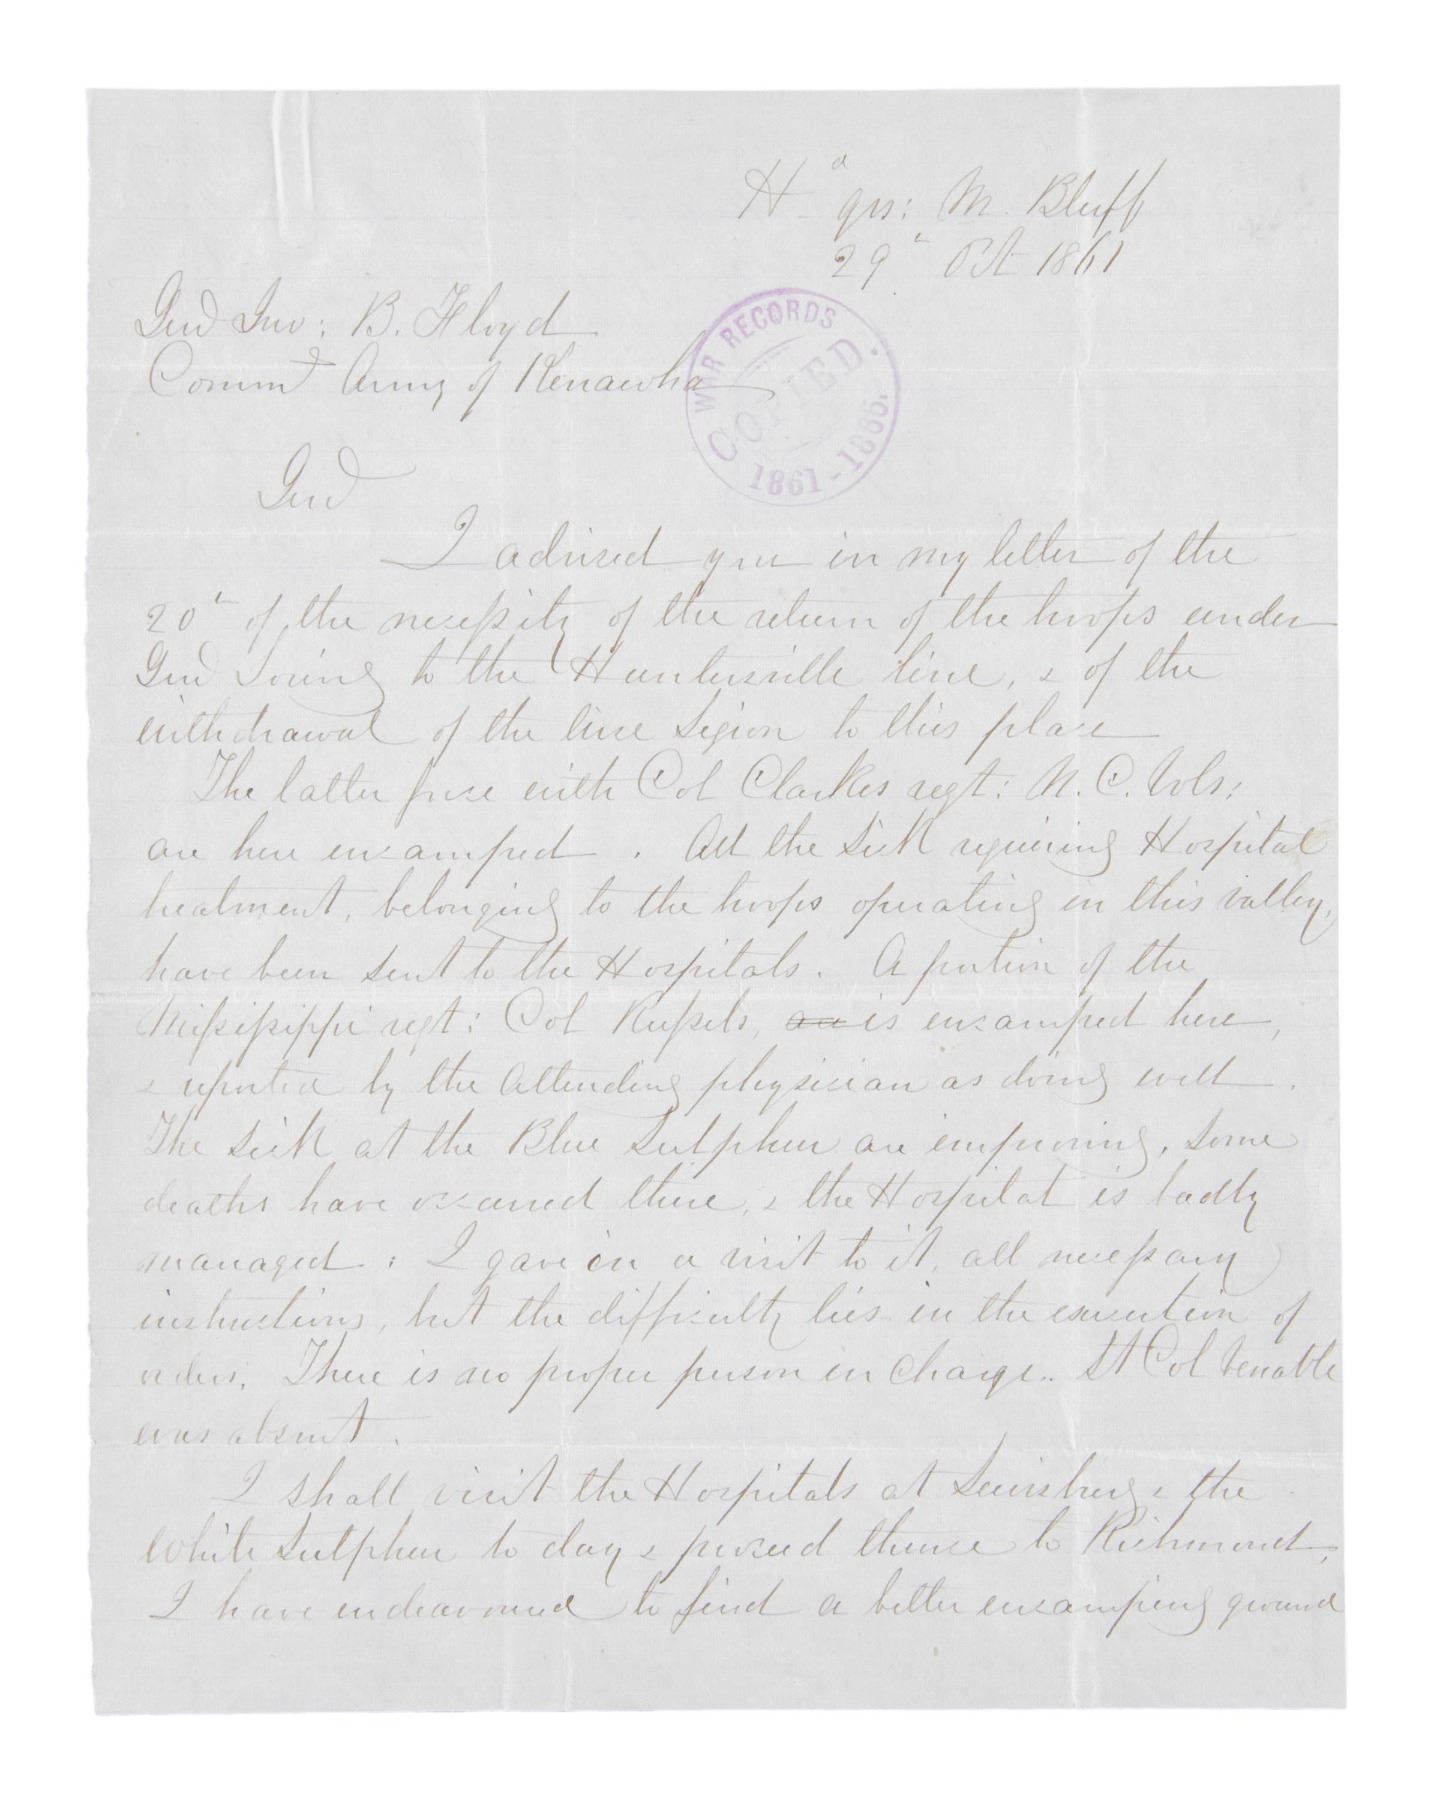 Hd qrs: M. Bluff
29th Oct 1861
Genl Jno: B. Floyd
Commd Army of Kenawha
WAR RECORDS
COPIED.
1861-1865.
Genl
I advised you in my letter of the
20th of the necessity of the return of the troops under
Genl Loring to the Huntersville line, & of the
withdrawal of the Wise Legion to this place
The latter force with Col Clarkes regt: N. C. Vols:
are here encamped. All the sick requiring Hospital
treatment, belonging to the troops operating in this valley,
have been sent to the Hospitals. A portion of the
Mississippi regt: Col Russels, is encamped here,
& reported by the attending physician as doing well.
The sick at the Blue Sulphur are improving, some
deaths have occurred there, & the Hospital is badly
managed: I gave in a visit to it, all necessary
instructions, but the difficulty lies in the execution of
orders. There is no proper person in charge.. Lt Col Venable
was absent.
I shall visit the Hospitals at Lewisburg & the
White Sulphur to day & proceed thence to Richmond,
I have endeavoured to find a better encamping ground